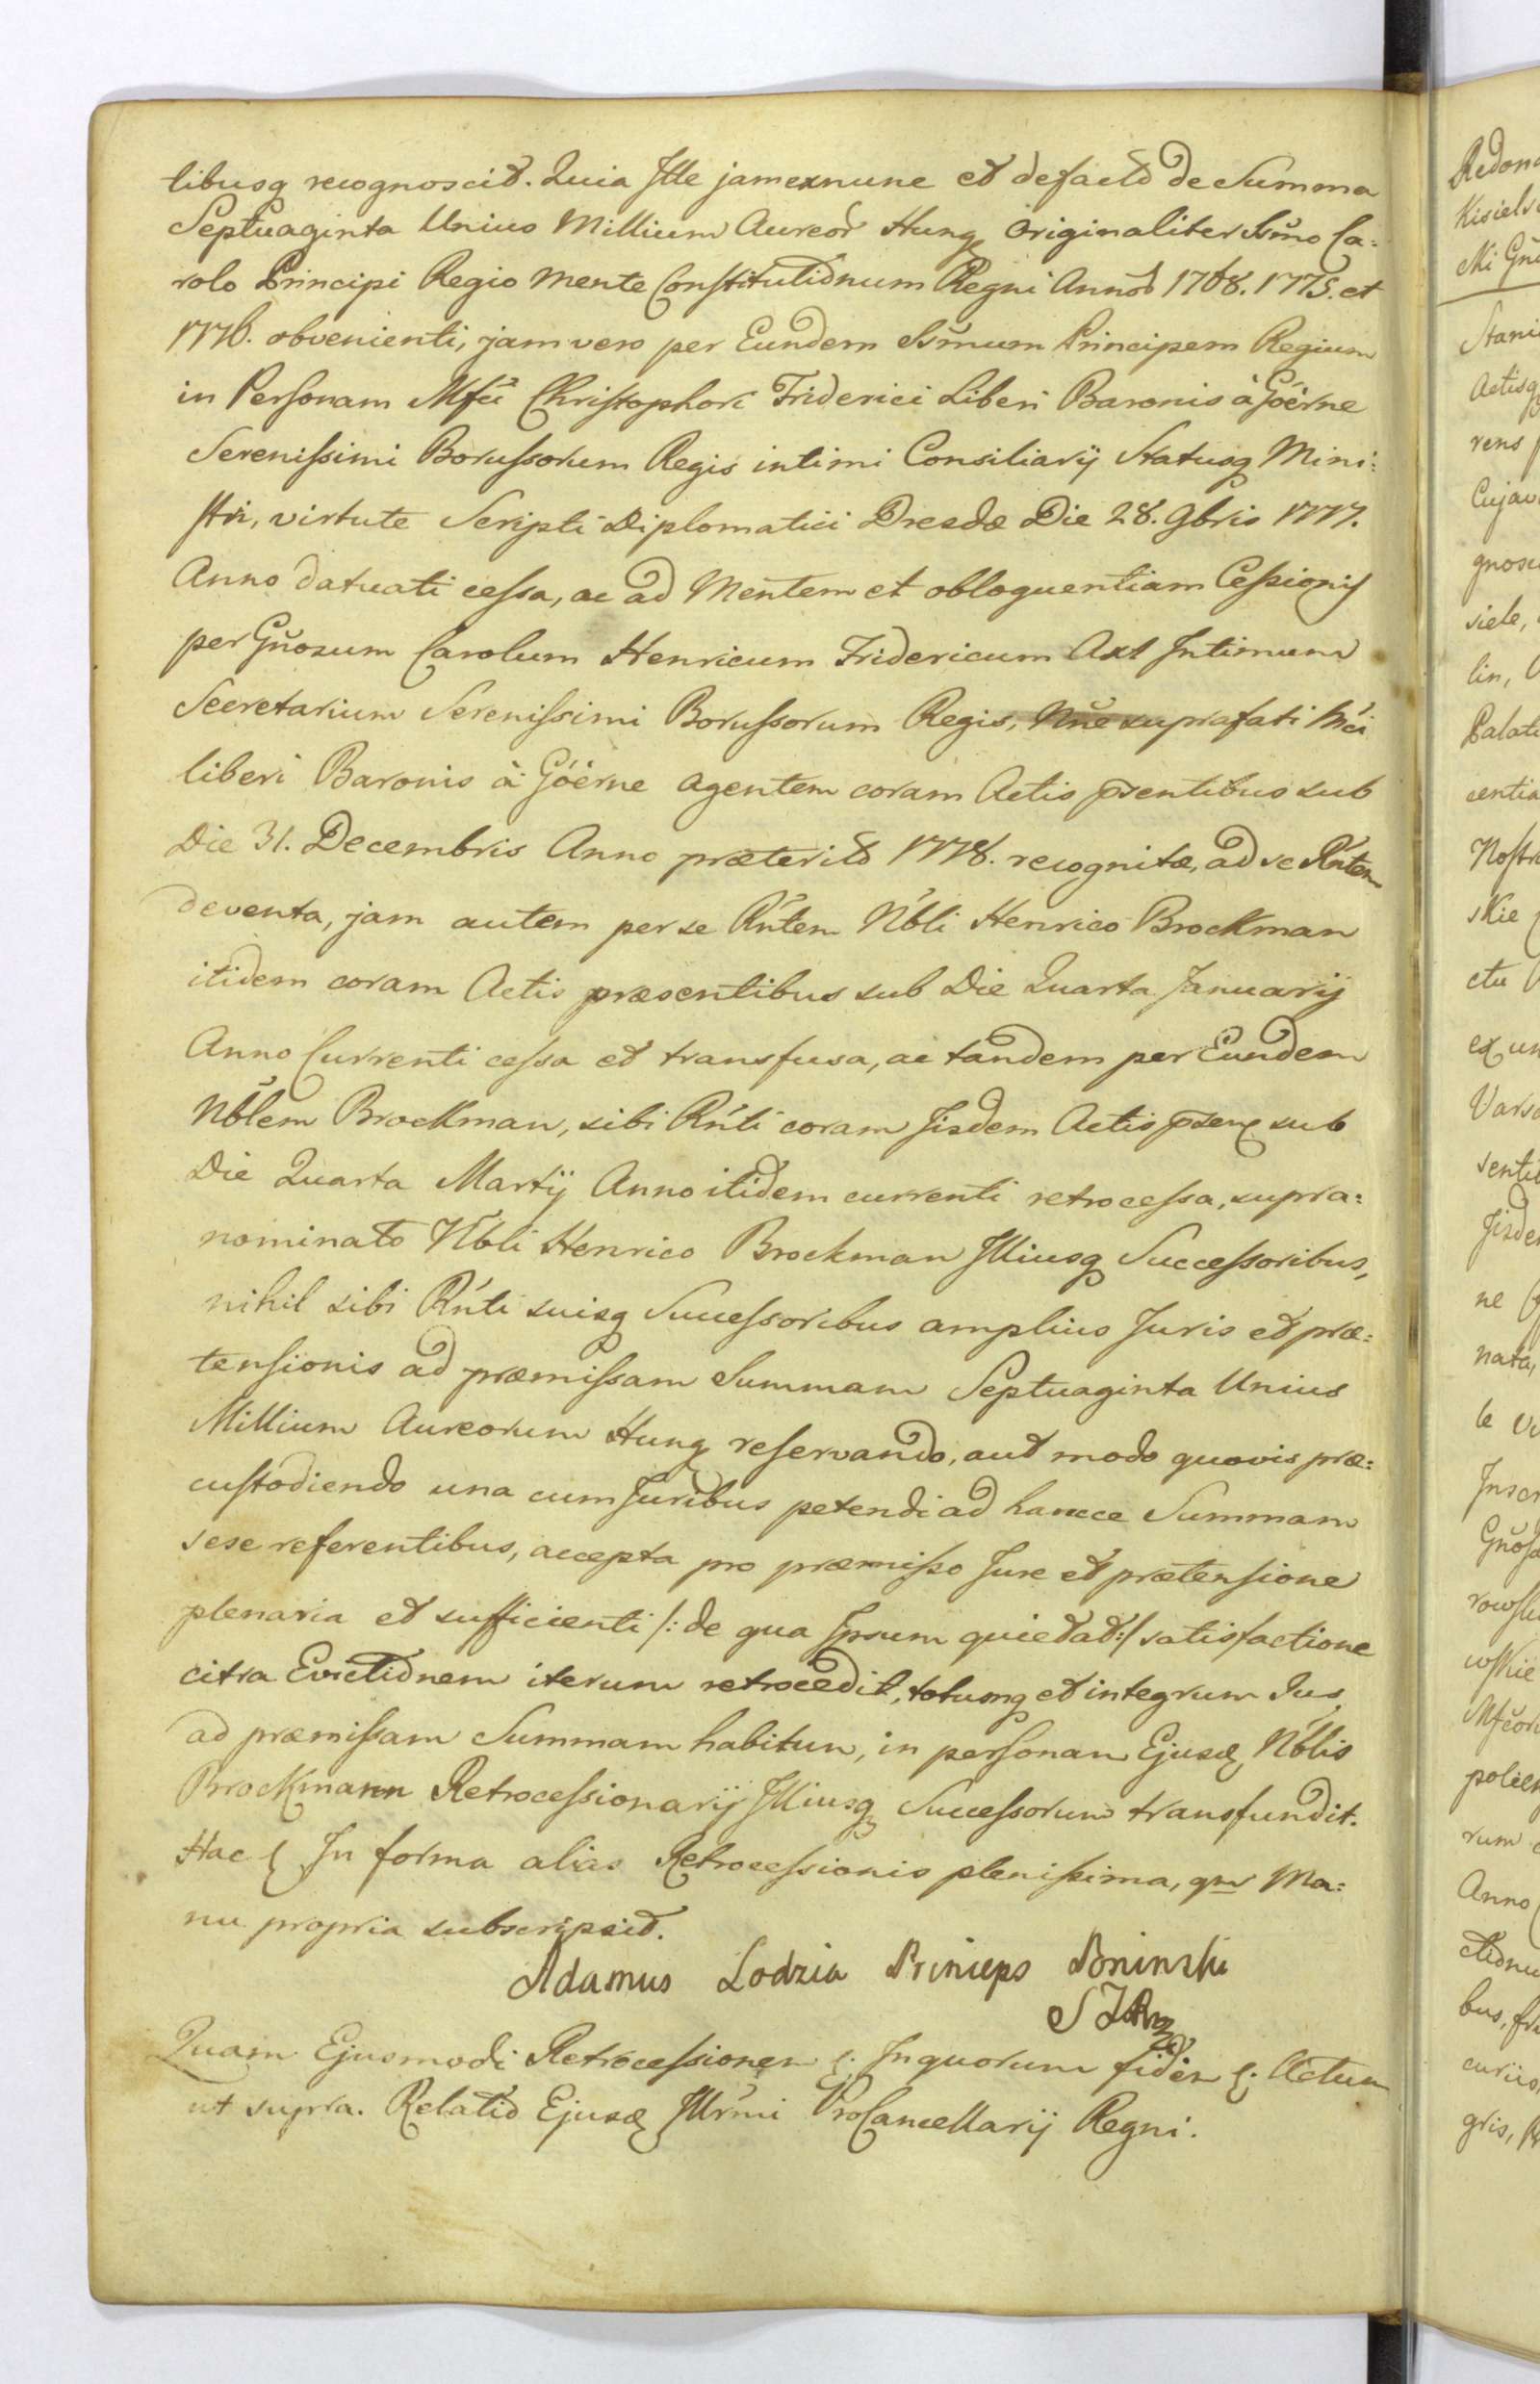 libusq recognoscit. Quia Ille jamexnunc et defacto de Summa
Septuaginta Unius Millium Aureor̃ Hung originaliter Ssm̃o Ca:
rolo Principi Regio mente Constitutionum Regni Annor̃ 1768. 1775. et
1776. obvenienti, jam vero per Eundem Ssm̃um Principem Regium
in Personam Mfci Christophori Friderici Liberi Baronis à Göerne
Serenissimi Borussorum Regis intimi Consiliarij Statusq Mini:
stri, virtute Scripti Diplomatici Dresdæ Die 28. 9bris 1777.
Anno datuati cessa, ac ad Mentem et obloquentiam Cessionis
per Gñosum Carolum Henricum Fridericum Axt Intimum
Secretarium Serenissimi Borussorum Regis, Nñe suprafati Mci
liberi Baronis à Göerne agentem coram Actis pſentibus sub
Die 31. Decembris Anno præterito 1778. recognitæ, ad se Rñtem
deventa, jam autem per se Rñtem Nbli Henrico Brockman
itidem coram Actis præsentibus sub Die Quarta Januarij
Anno Currenti cessa et transfusa, ac tandem per Eundem
Nblem Brockman, sibi Rñti coram Iisdem Actis pſen sub
Die Quarta Martij Anno itidem currenti retrocessa, supra:
nominato Nbli Henrico Brockman Illiusq Successoribus,
nihil sibi Rñti suisq Successoribus amplius Juris et præ:
tensionis ad præmissam Summam Septuaginta Unius
Millium Aureorum Hung reservando, aut modo quovis præ:
custodiendo una cum Juribus petendi ad hancce Summam
sese referentibus, accepta pro præmisso Jure et prætensione
plenaria et sufficienti /: de qua Ipsum quietat :/ satisfactione
citra Evictionem iterum retrocedit, totumq et integrum Jus
ad præmissam Summam habitum, in personam Ejusd Nblis
Brockmann Retrocessionarij Illiusq Successorum transfundit.
Hac In forma alias Retrocessionis plenissima, qm Ma:
nu propria subscripsit.
Adamus Lodzia Princeps Poninski
Quam Ejusmodi Retrocessionem In quorum fidem Actum
ut supra. Relatio Ejusd Illrmi ProCancellarij Regni.